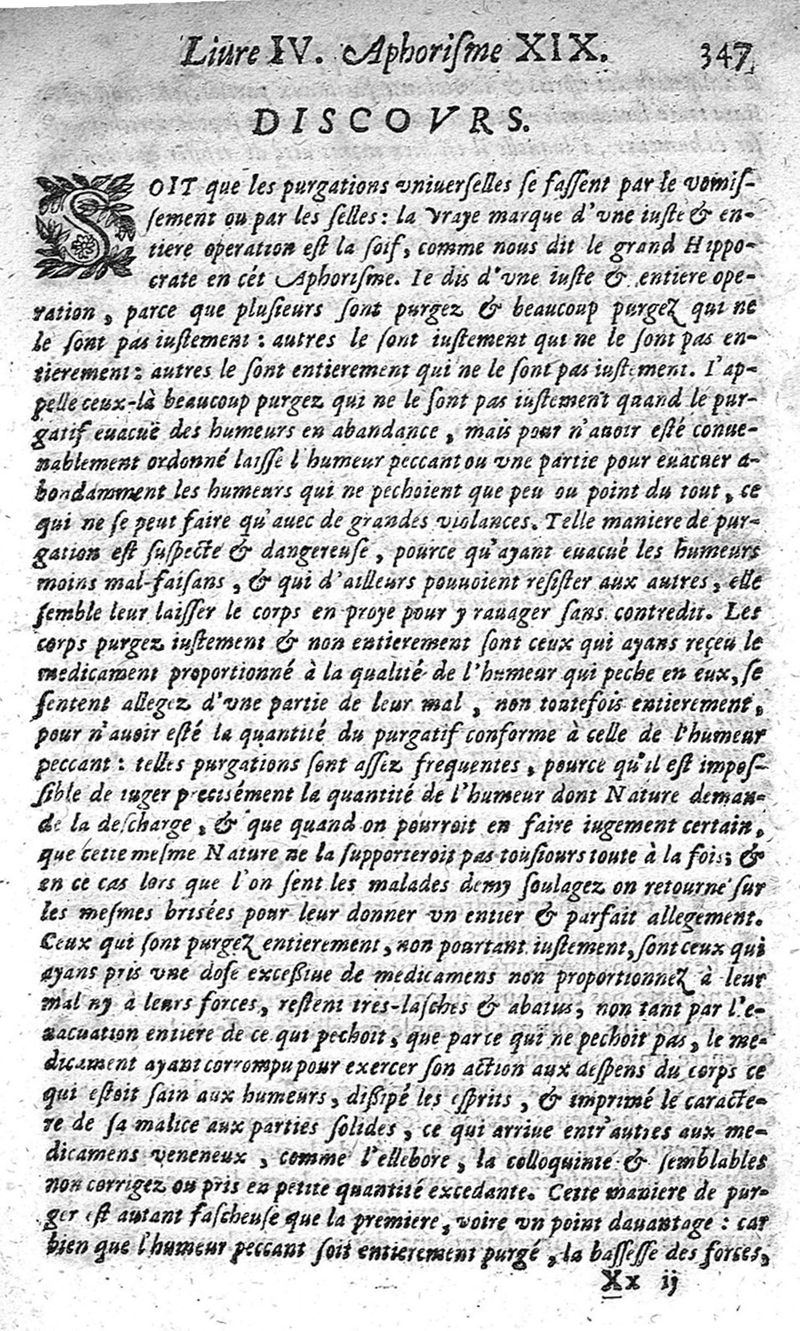 Liure IV. Aphoriſme XIX. 347
DISCOVRS.
SOIT que les purgations vniuerſelles ſe faſſent par le vomiſ-
ſement ou par les ſelles : la vraye marque d'vne iuſte & en-
tiere operation eſt la ſoif, comme nous dit le grand Hippo-
crate en cét Aphoriſme. Ie dis d'vne iuſte & entiere ope-
ration, parce que pluſieurs ſont purgez & beaucoup purgez qui ne
le ſont pas iuſtement : autres le ſont iuſtement qui ne le ſont pas en-
tierement : autres le ſont entierement qui ne le ſont pas iuſtement. I'ap-
pelle ceux-là beaucoup purgez qui ne le ſont pas iuſtement quand le pur-
gatif euacuë des humeurs en abandance, mais pour n'auoir eſté conue-
nablement ordonné laiſſe l'humeur peccant ou vne partie pour euacuer a-
bondamment les humeurs qui ne pechoient que peu ou point du tout, ce
qui ne ſe peut faire qu'auec de grandes violances. Telle maniere de pur-
gation eſt ſuſpecte & dangereuſe, pource qu'ayant euacué les humeurs
moins mal-faiſans, & qui d'ailleurs pouuoient reſiſter aux autres, elle
ſemble leur laiſſer le corps en proye pour y rauager ſans contredit. Les
corps purgez iuſtement & non entierement ſont ceux qui ayans reçeu le
medicament proportionné à la qualité de l'humeur qui peche en eux, ſe
ſentent allegez d'vne partie de leur mal, non toutefois entierement,
pour n'auoir eſté la quantité du purgatif conforme à celle de l'humeur
peccant : telles purgations ſont aſſez frequentes, pource qu'il eſt impoſ-
ſible de iuger precisément la quantité de l'humeur dont Nature deman-
de la deſcharge, & que quand on pourroit en faire iugement certain,
que cette meſme Nature ne la ſupporteroit pas touſiours toute à la fois; &
en ce cas lors que l'on ſent les malades demy ſoulagez on retourne ſur
les meſmes brisées pour leur donner vn entier & parfait allegement.
Ceux qui ſont purgez entierement, non pourtant iuſtement, ſont ceux qui
ayans pris vne doſe exceßiue de medicamens non proportionnez à leur
mal ny à leurs forces, reſtent tres-laſches & abatus, non tant par l'e-
uacuation entiere de ce qui pechoit, que parce qui ne pechoit pas, le me-
dicament ayant corrompu pour exercer ſon action aux deſpens du corps ce
qui eſtoit ſain aux humeurs, dißipé les eſprits, & imprimé le caracte-
re de ſa malice aux parties ſolides, ce qui arriue entr'autres aux me-
dicamens veneneux, comme l'ellebore, la colloquinte & ſemblables
non corrigez ou pris en petite quantité excedante. Cette maniere de pur-
ger eſt autant faſcheuſe que la premiere, voire vn point dauantage : car
bien que l'humeur peccant ſoit entierement purgé, la baſſeſſe des forces,
Xx ij